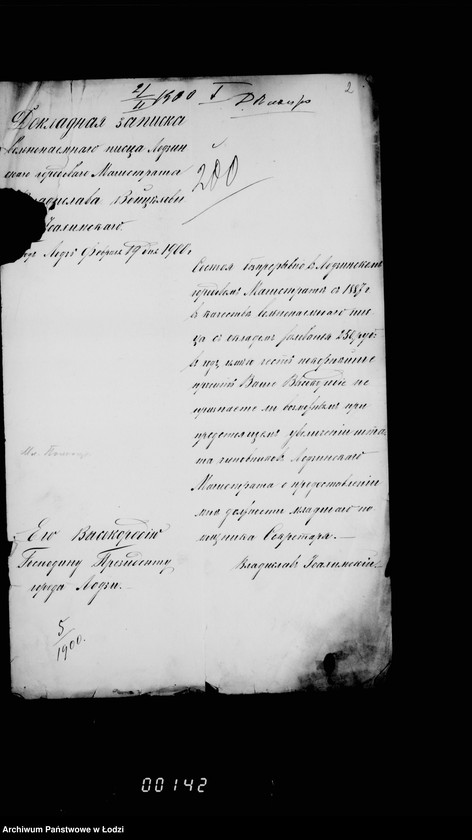 21/II 1900 I
2
Докладная записка
вольнонаемнаго писца Лодзин
скаго городоваго Магистрата
Владислава Войцехова
Іоалимскаго
Лодзь Февраля 19 дня 1900 г
200
Состоя безпрерывно в Лодзинскомъ
городовомъ Магистратѣ с 1887 г
въ качествѣ вольнонаемнаго пис
ца с окладомъ жалованья 250 руб
в годъ имѣю честь покорнѣйше
просить Ваше Высокородіе не
признаете ли возможнымъ при
предстоящемъ увеличеніи шта
та чиновниковъ Лодзинскаго
Магистрата о предоставленіи
мнѣ должности младшаго по
мощника Секретаря.
Владиславъ Іоалимскій.
Его Высокородію
Господину Президенту
города Лодзи.
5/1900.
00142
Archiwum Państwowe w Łodzi